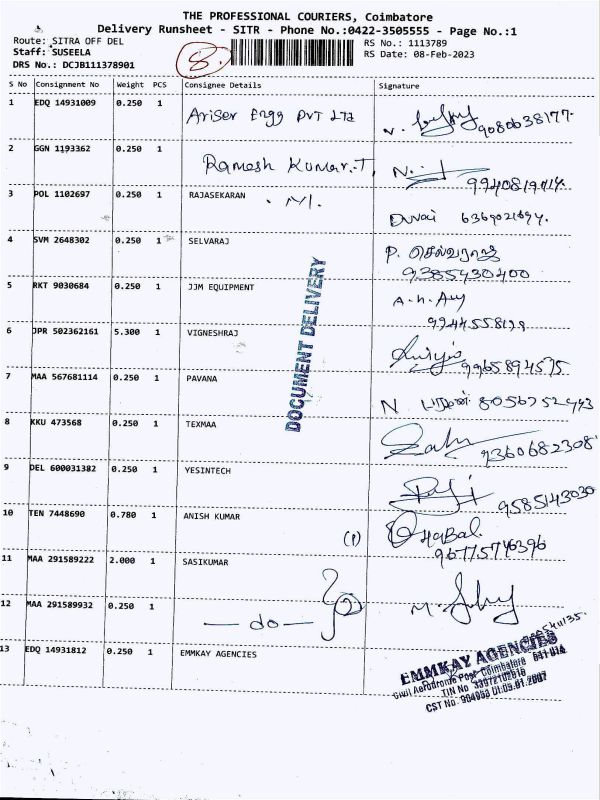 THE PROFESSIONAL COURIERS, Coimbatore
Delivery Runsheet - SITR - Phone No.:0422-3505555 - Page No.:1
Route: SITRA OFF DEL
Staff: SUSEELA
DRS No.: DCJB111378901
8.
RS No.: 1113789
RS Date: 08-Feb-2023
S No Consignment No Weight PCS Consignee Details Signature
1 EDQ 14931009 0.250 1 Ariser Engg Pvt Ltd 9080638177
2 GGN 1193362 0.250 1 Ramesh Kumar.T,
3 POL 1102697 0.250 1 RAJASEKARAN
4 SVM 2648302 0.250 1 SELVARAJ P. செல்வராஜ்
9385430400
5 RKT 9030684 0.250 1 JJM EQUIPMENT
6 JPR 502362161 5.300 1 VIGNESHRAJ 9965894575
7 MAA 567681114 0.250 1 PAVANA N 8056752493
8 KKU 473568 0.250 1 TEXMAA 9360682308
9 DEL 600031382 0.250 1 YESINTECH 9585143030
10 TEN 7448690 0.780 1 ANISH KUMAR (1)
9677574 6396
11 MAA 291589222 2.000 1 SASIKUMAR
12 MAA 291589932 0.250 1 — do —
13 EDQ 14931812 0.250 1 EMMKAY AGENCIES
DOCUMENT DELIVERY
EMMKAY AGENCIES
Civil Aerodrome Post Coimbatore 641 014
TIN No
CST No.